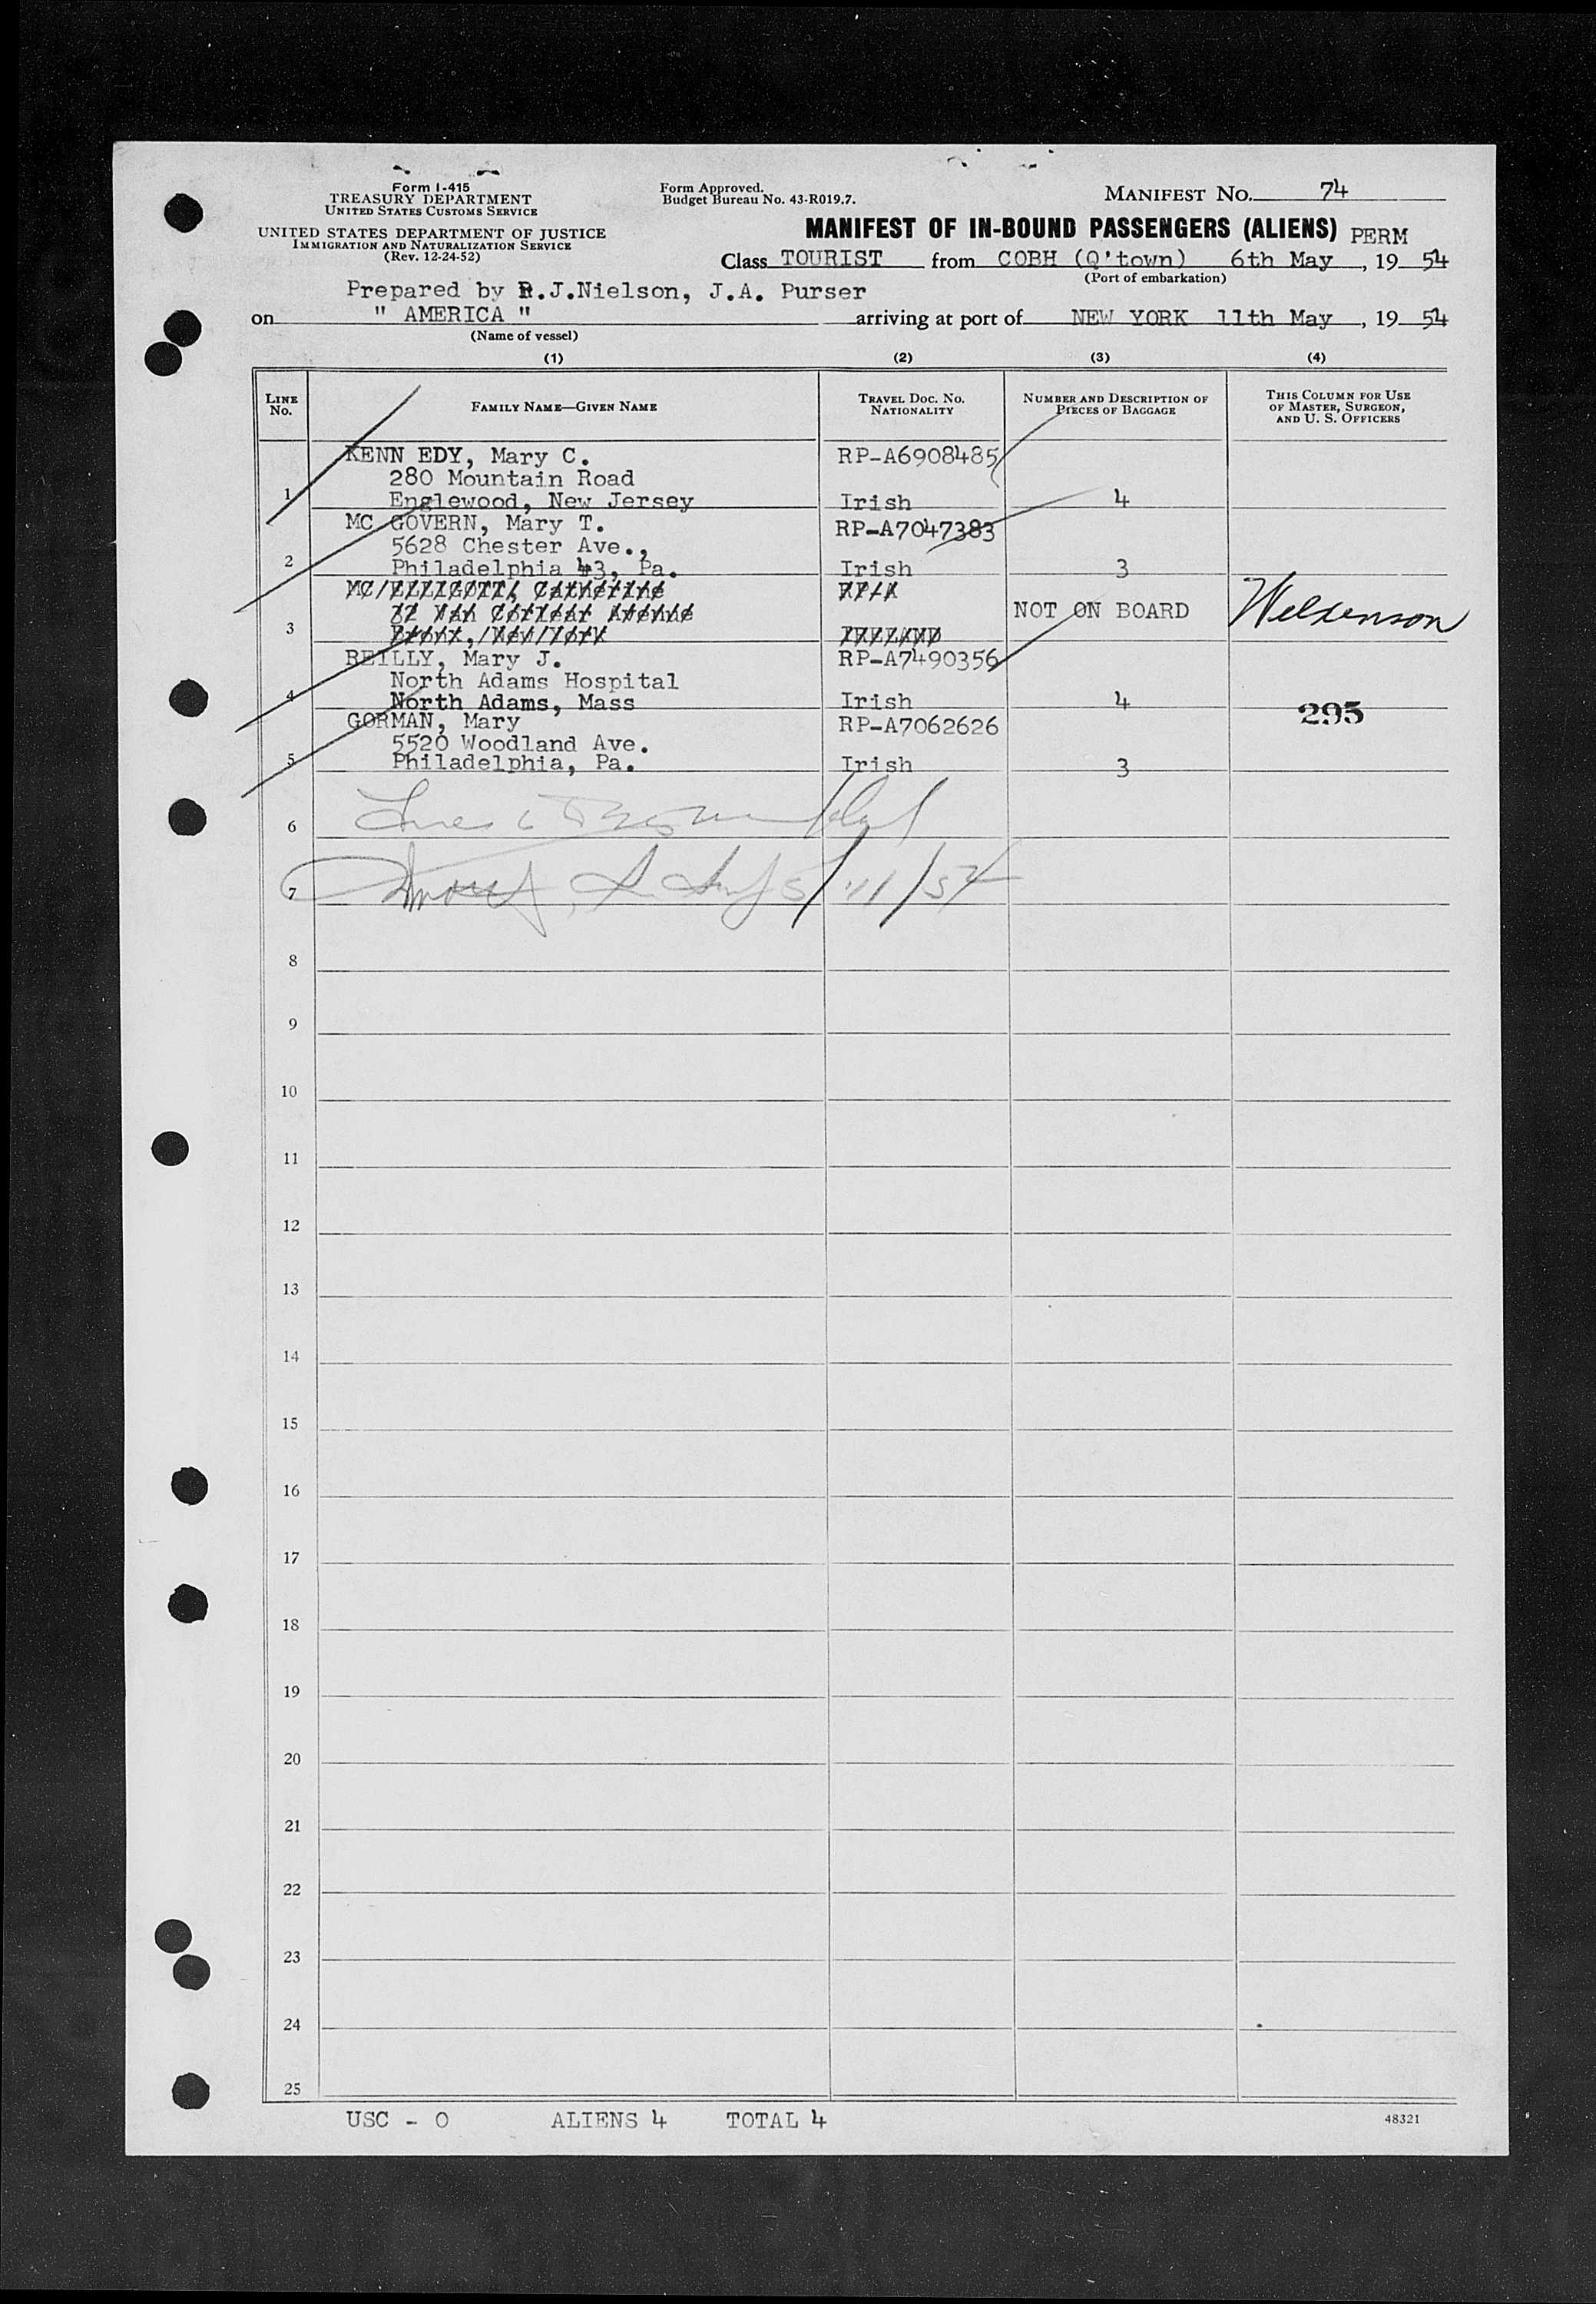 Form I-415
TREASURY DEPARTMENT
UNITED STATES CUSTOMS SERVICE
UNITED STATES DEPARTMENT OF JUSTICE
IMMIGRATION AND NATURALIZATION SERVICE
(Rev. 12-24-52)
Form Approved.
Budget Bureau No. 43-R019.7.
MANIFEST NO. 74
MANIFEST OF IN-BOUND PASSENGERS (ALIENS) PERM
Class TOURIST from COBH (Q'town) 6th May, 19 54
(Port of embarkation)
Prepared by R.J.Nielson, J.A. Purser
on " AMERICA " arriving at port of NEW YORK 11th May, 19 54
(Name of vessel)
(1) (2) (3) (4)
LINE NO. FAMILY NAME—GIVEN NAME TRAVEL DOC. NO. NATIONALITY NUMBER AND DESCRIPTION OF PIECES OF BAGGAGE THIS COLUMN FOR USE OF MASTER, SURGEON, AND U. S. OFFICERS
KENN EDY, Mary C. RP-A6908485
280 Mountain Road
1 Englewood, New Jersey Irish 4
MC GOVERN, Mary T. RP-A7047383
5628 Chester Ave.,
2 Philadelphia 43, Pa. Irish 3
MC Catherine RP-A
Van Cortlear Avenue NOT ON BOARD
3 Bronx, New York IRELAND
REILLY, Mary J. RP-A7490356
North Adams Hospital
4 North Adams, Mass Irish 4
295
GORMAN, Mary RP-A7062626
5520 Woodland Ave.
5 Philadelphia, Pa. Irish 3
6
7 5/11/54
8
9
10
11
12
13
14
15
16
17
18
19
20
21
22
23
24
25
USC - 0 ALIENS 4 TOTAL 4
48321